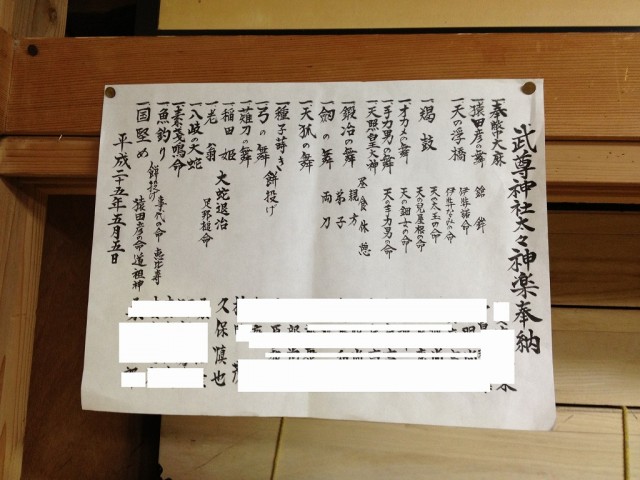 武尊神社太々神楽奉納
一奉幣中大麻
一猿田彦の舞 鉾
一天の浮橋 伊弉諾命
伊弉なみの命
一羯鼓 天の太玉の命
天の兒屋根の命
一オカメの舞 天の鈿女の命
一手力男の舞 天の手力男の命
一天照皇大神
昼食休憩
一鍛冶の舞 親方
弟子
一劔の舞 両刀
一天狐の舞
一種子蒔き 餅投げ
一弓の舞
一薙刀の舞
一稲田姫 大蛇退治
一老翁 足那槌命
一八岐の大蛇 久保慎也
一素戔鳴命
一魚釣り 餅投げ 事代命 恵比寿
一国堅め 猿田彦命 道祖神
平成二十五年五月五日